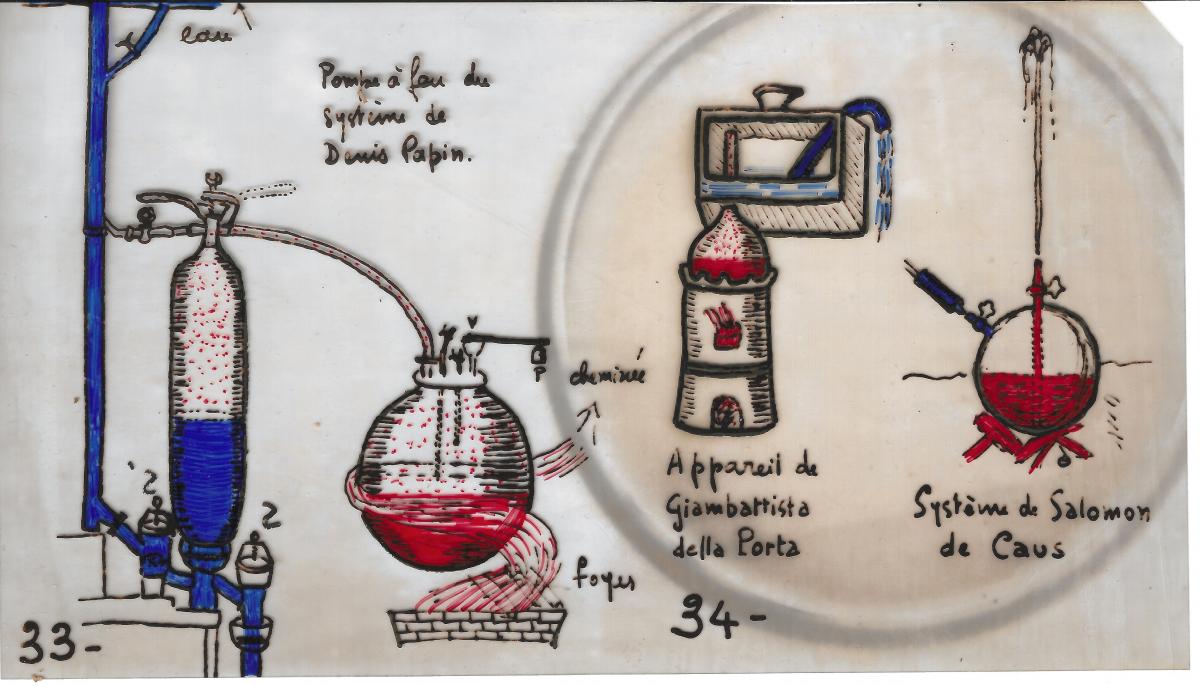 eau
Pompe à feu du
système de
Denis Papin.
V
P
cheminée
2
2
foyer
33-
Appareil de
Giambattista
della Porta
Système de Salomon
de Caus
34-